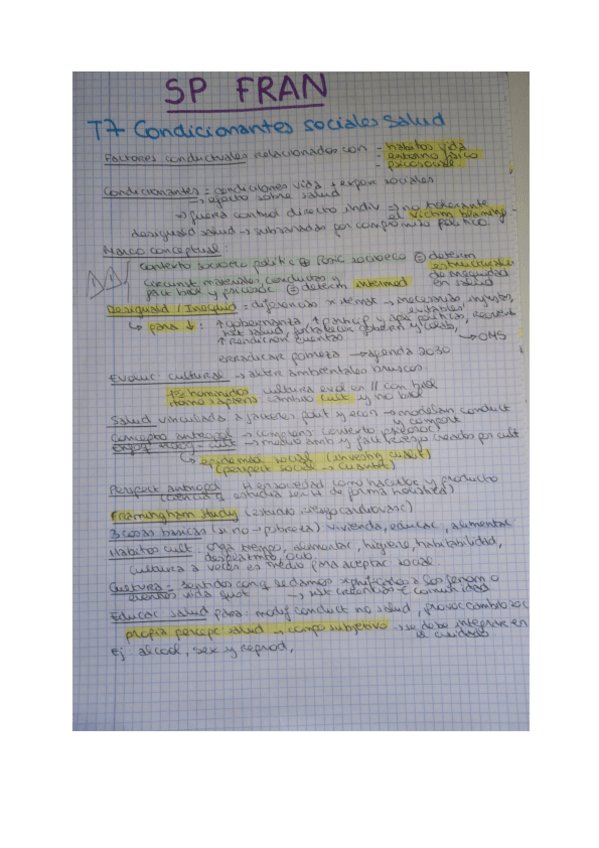 SP FRAN
T7 Condicionantes sociales salud
Factores conductuales relacionados con - habitos vida
- entorno físico
- psicosocial
Condicionantes = condiciones vida y expon sociales
→ efecto sobre salud
→ fuera control directo indiv → no
el victim blaming
desigualdad salud → subsanadas por compromiso político.
Marco conceptual:
Contexto socioeco politic ⊕ Posic socioeco = determ estructurales
de inequidad
en salud
circunst materiales, conductas y
fact biol y psicosoc = determ intermed
Desigualdad / Inequid = diferencias x
innecesarias, injustas,
evitables
para ↓: ↑ gobernanza, ↑ particip y
↑ rendición cuentas → OMS
erradicar pobreza → agenda 2030
Evoluc. cultural → alter ambientales bruscos
homínidos cultura evol en // con biol
homo sapiens cambio cult y no biol
Salud vinculada a factores polit y econ → modelan conduct
y comport
Concepto antropol → comprens contexto
cult → medio amb y fact riesgo creados por cult
epidemiol social (investig cualit)
(perspect social → cuantit)
Perspect antropol H en sociedad como hacedor y producto
(ciencia q estudia ser H de forma holística)
Framingham study (estudio riesgo cardiovasc)
3 cosas básicas (si no → pobreza) vivienda, educac, alimentac
Hábitos cult. Org tiempo, alimentac, higiene, habitabilidad,
ocio.
cultura a veces es medio para aceptac social.
Cultura = sentidos con q le damos significados a los fenom o
eventos vida quot → sist creencias = comunidad
Educac salud para: modif conduct no salud, provoc cambio soc
propia percepc salud → comp subjetivo → se debe integrar en
el cuidado
ej: alcool, sex y reprod,